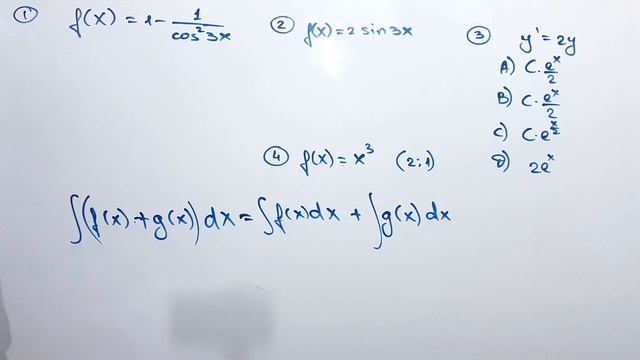 ① f(x) = 1 - 1/cos²3x
② f(x) = 2 sin 3x
③ y' = 2y
A) C · eˣ/2
B) C · eˣ/2
C) C · e^(x/2)
D) 2eˣ
④ f(x) = x³ (2;1)
∫(f(x) + g(x)) dx = ∫f(x)dx + ∫g(x) dx